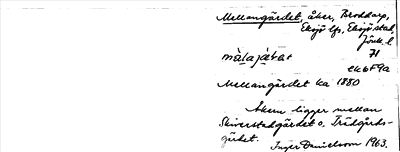 Mellangärdet, åker, Broddarp,
Eksjö lfs, Eksjö stad,
Jönk. l
71
ek 6F9a
Mellangärdet ka 1880
Åkern ligger mellan
Skiverstadgärdet o. Trädgårds-
gärdet.
Inger Danielsson 1963.